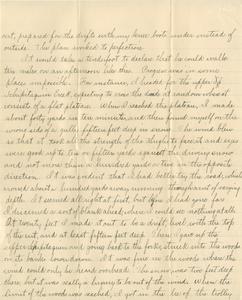 out, prepared for the drifts with my knee boots under instead of
outside. The plan worked to perfection.
It would take a tenderfoot to declare that he could walk
ten miles on an afternoon like this. Progress was in some
places impossible. For instance, I headed for the upper
creek, expecting to cross the at random when it
consists of a flat plateau. When I reached the plateau, I made
about forty yards in ten minutes, and then found myself on the
wrong side of a gully fifteen feet deep in snow. The wind blew
so that it took all the strength of the thighs to proceed and eyes
were good only to ten or fifteen yards against the driving snow
and not more than a hundred yards or two in the opposite
direction. I was evident that I had better try the road, which
around about a hundred yards away, running through snow of varying
depth. It seemed alright at first, but before I had gone far
I discerned a sort of blank ahead, where I could see nothing at all.
At twenty feet I made it out to be a drift level with the top
of the cut, and at least fifteen feet deep. Then I gave up the
upper and going back to the fork, struck into the woods
on its banks lower down. It was fine in the woods where the
wind could only be heard overhead. The snow was two feet deep
there, but it was really a luxury to be out of the wind. When the
limit of the woods was reached, I got in the lee of the trolley